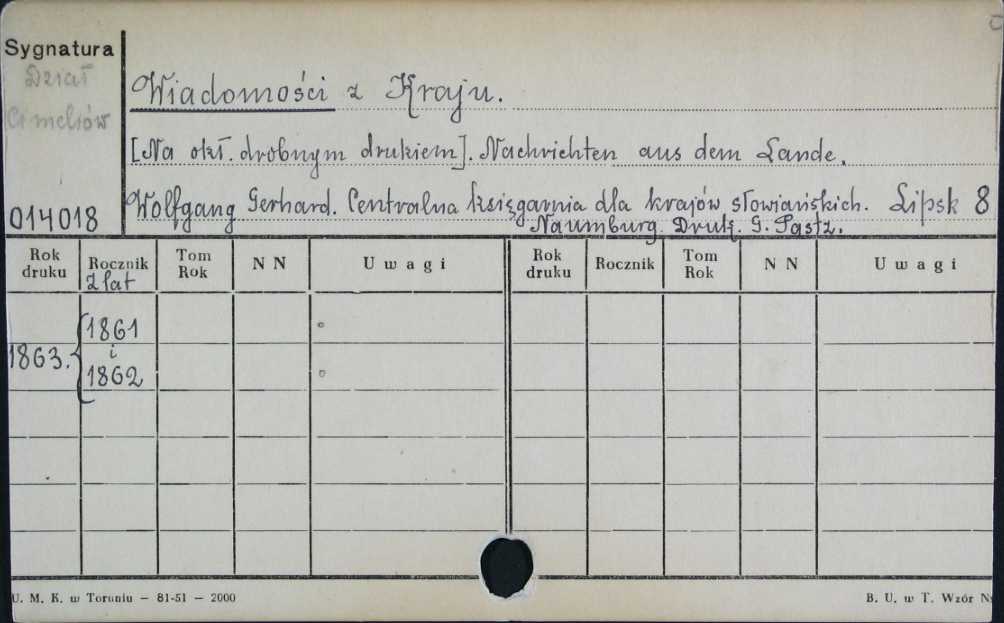 Sygnatura
Dział
Cimeliów
014018
Wiadomości z Kraju.
[Na okł. drobnym drukiem]. Nachrichten aus dem Lande.
Wolfgang Gerhard. Centralna księgarnia dla krajów słowiańskich. Lipsk 8
Naumburg. Druk. G. Pastz.
Rok druku Rocznik Tom Rok N N Uwagi Rok druku Rocznik Tom Rok N N Uwagi
2 lat
1861
1863. i
1862
U. M. K. w Toruniu — 81-51 — 2000
B. U. w T. Wzór N